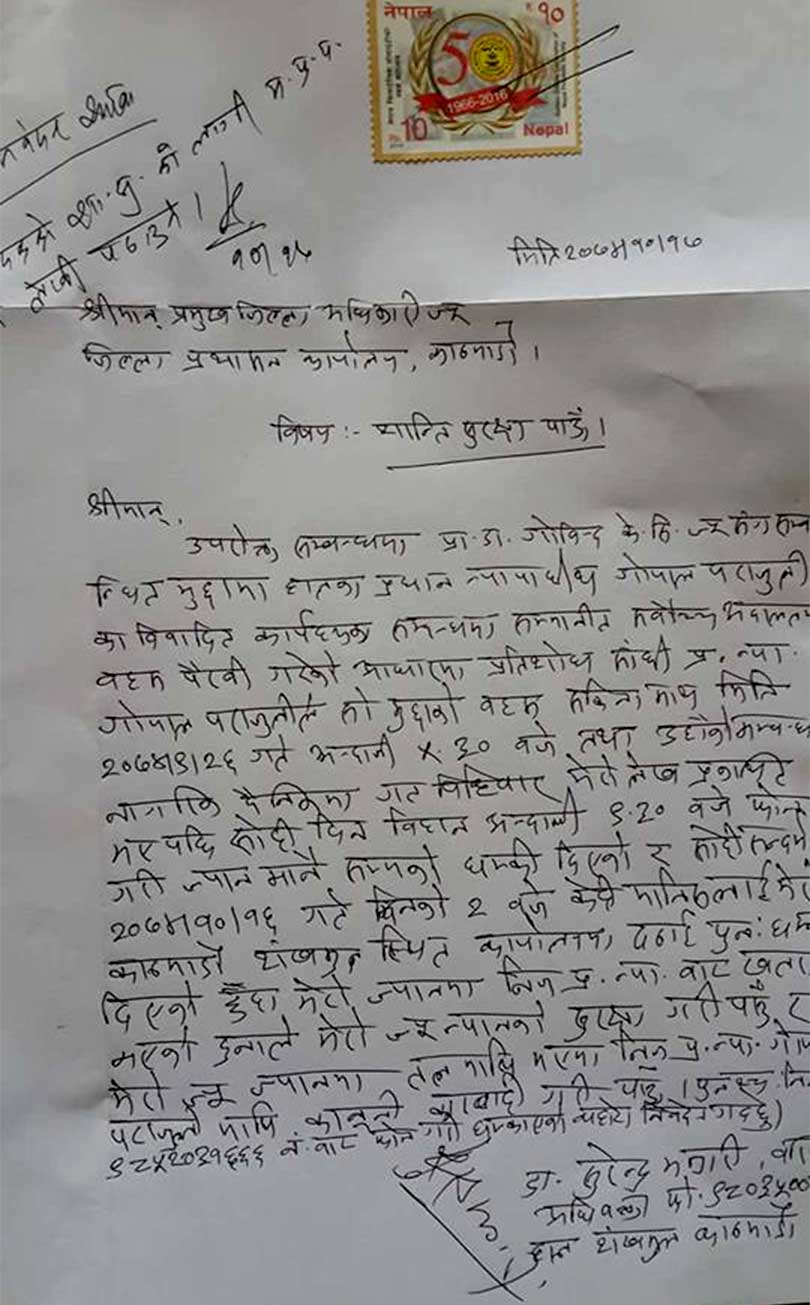 नेपाल
रु १०
50
1966-2016
Rs. 10
Nepal
मिति २०७४।१०।१७
१०।१७
श्रीमान् प्रमुख जिल्ला अधिकारी ज्यू
जिल्ला प्रशासन कार्यालय, काठमाडौं ।
विषय :- शान्ति सुरक्षा पाऊँ ।
श्रीमान्,
उपरोक्त सम्बन्धमा प्रा. डा. गोविन्द के. सि. ज्यू संग सम्ब
न्धित मुद्दामा हालका प्रधान न्यायाधीश गोपाल पराजुली
का विवादित कार्यहरुका सम्बन्धमा सम्मानीत सर्वोच्च अदालतमा
वहस पैरवी गरेको आधारमा प्रतिशोध साँधी प्र. न्या.
गोपाल पराजुलीले सो मुद्दाको वहस सकिना साथ मिति
२०७४।९।२६ गते अन्दाजी ५.३० वजे तथा उहाँको सम्बन्ध
नागरिक दैनिकमा गत विहिवार मेरो लेख प्रकाशित
भए पछि सोही दिन विहान अन्दाजी ९.२० वजे फोन
गरी ज्यान मार्ने सम्मको धम्की दिएको र सोही सन्दर्भ
२०७४।१०।१६ गते दिनको २ वजे केही मानिसलाई मेरो
काठमाडौं शंखमूल स्थित कार्यालयमा पठाई पुन: धम्
दिएको हुँदा मेरो ज्यानमा निज प्र. न्या. वाट खतरा
भएको हुनाले मेरो ज्यू ज्यानको सुरक्षा गरी पाऊँ र
मेरो ज्यू ज्यानमा तल माथि भएमा निज प्र. न्या. गोपा
पराजुली माथि कानूनी कारवाही गरी पाऊँ । पुनश्च: नि
९८५१०३१६६६ नं. वाट फोन गरी धम्काएको व्यहोरा निवेदन गर्दछु)
डा. सुरेन्द्र भण्डारी,
अधिवक्ता फो. ९८०३५००
हाल शंखमूल काठमाडौं